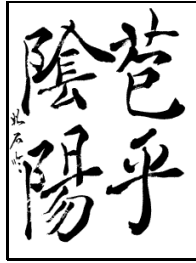 苞乎
陰陽